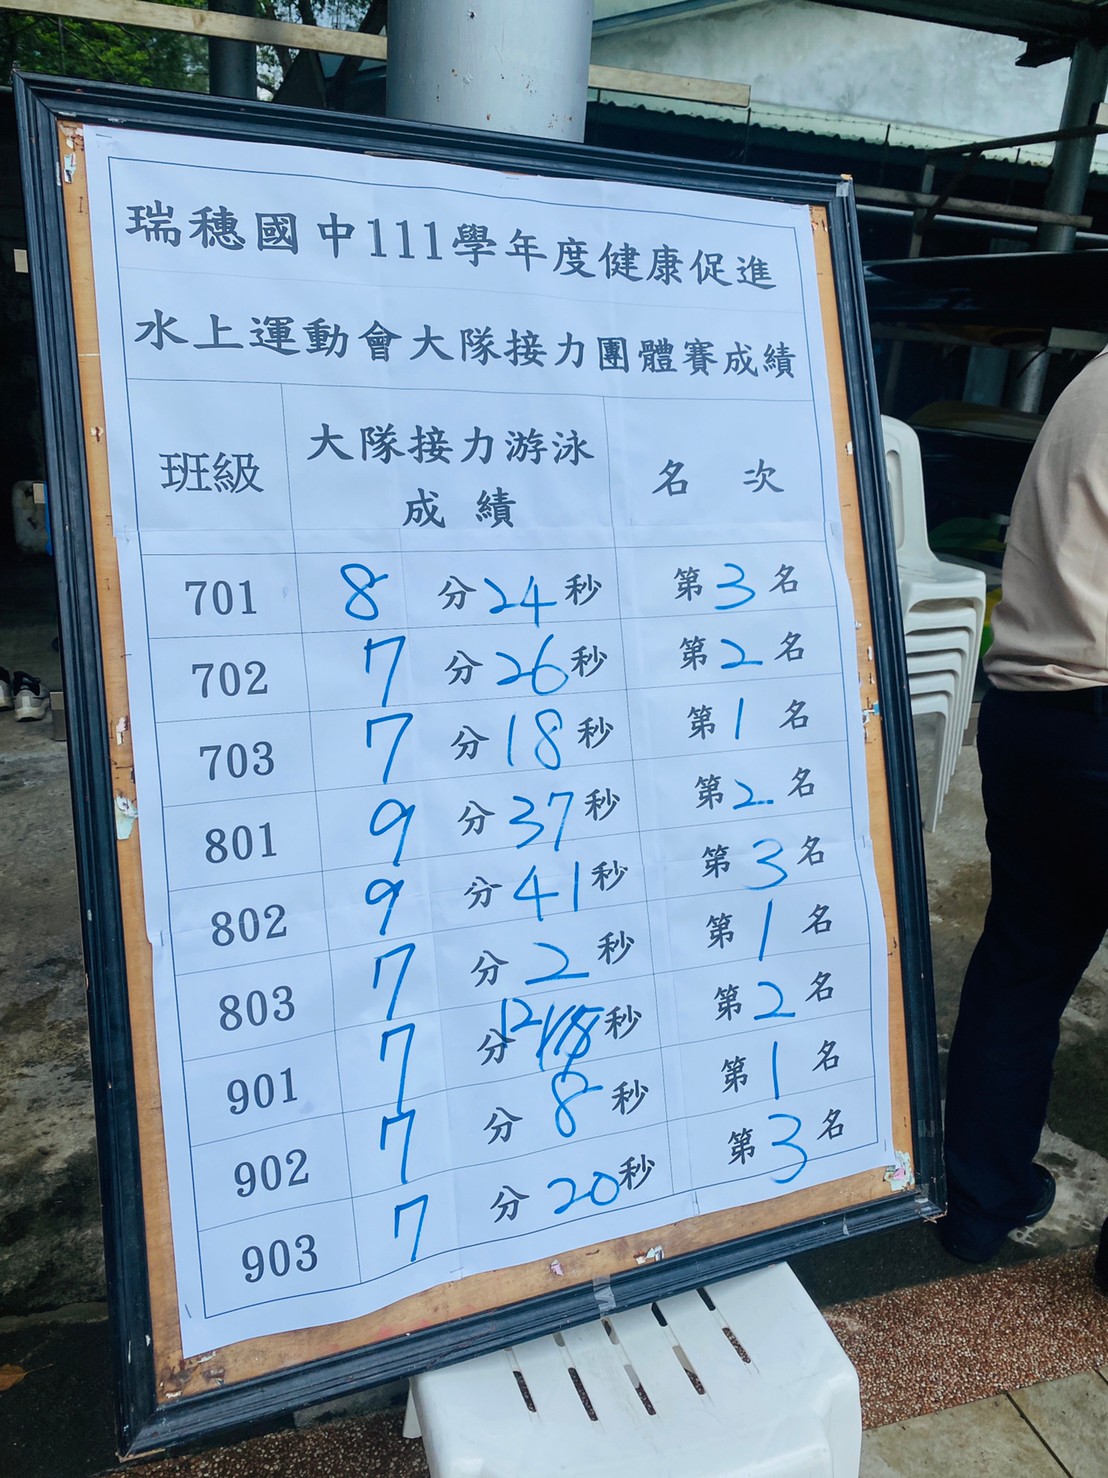 瑞穗國中111學年度健康促進
水上運動會大隊接力團體賽成績
班級 大隊接力游泳成績 名次
701 8分24秒 第3名
702 7分26秒 第2名
703 7分18秒 第1名
801 9分37秒 第2名
802 9分41秒 第3名
803 7分2秒 第1名
901 7分12秒 第2名
902 7分8秒 第1名
903 7分20秒 第3名